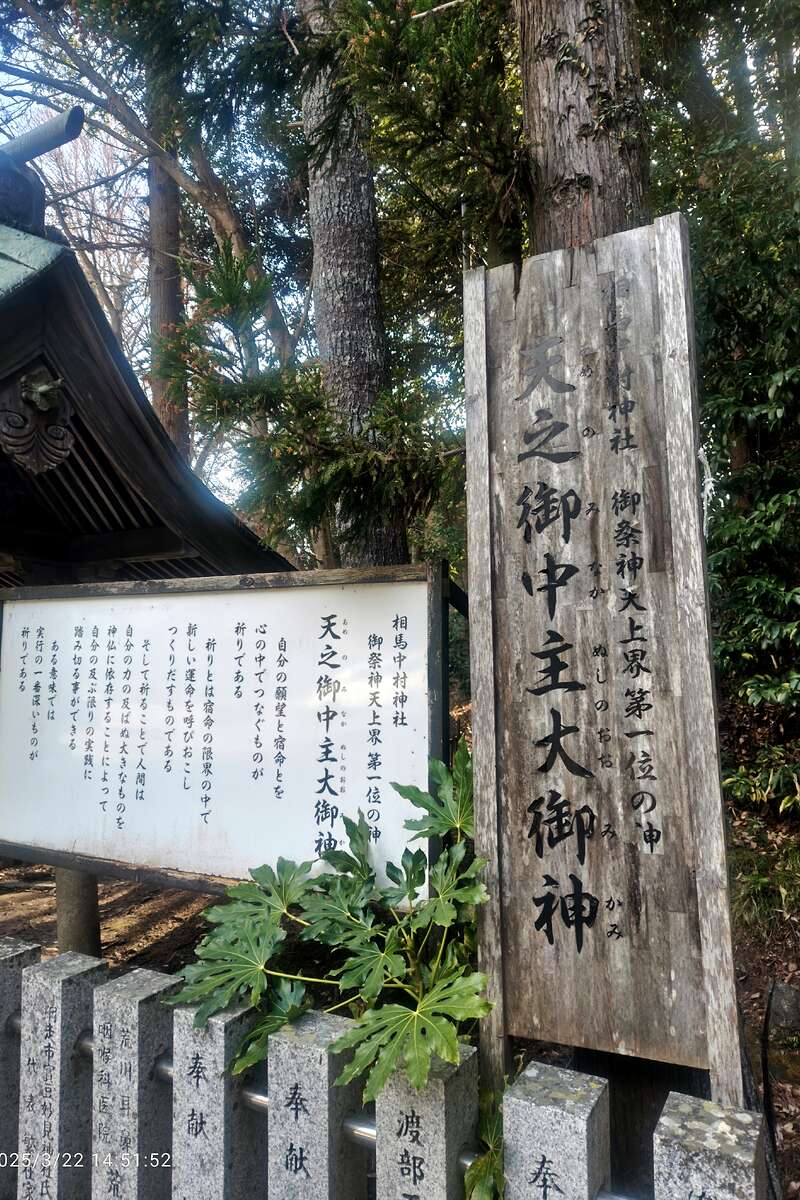 相馬中村神社 御祭神天上界 第一位の神
あめ の み なか ぬしのおお み かみ
天之御中主大御神
相馬中村神社
御祭神天上界 第一位の神
あめ の み なか ぬしのおお
天之御中主大御神
自分の願望と宿命とを
心の中でつなぐものが
祈りである
祈りとは宿命の限界の中で
新しい運命を呼びおこし
つくりだすものである
そして祈ることで人間は
自分の力の及ばぬ大きなものを
神仏に依存することによって
自分の及ぶ限りの実践に
踏み切る事ができる
ある意味では
実行の一番深いものが
祈りである
奉献
奉献
渡部
奉
荒川耳鼻
咽喉科医院
代表
025/3/22 14:51:52